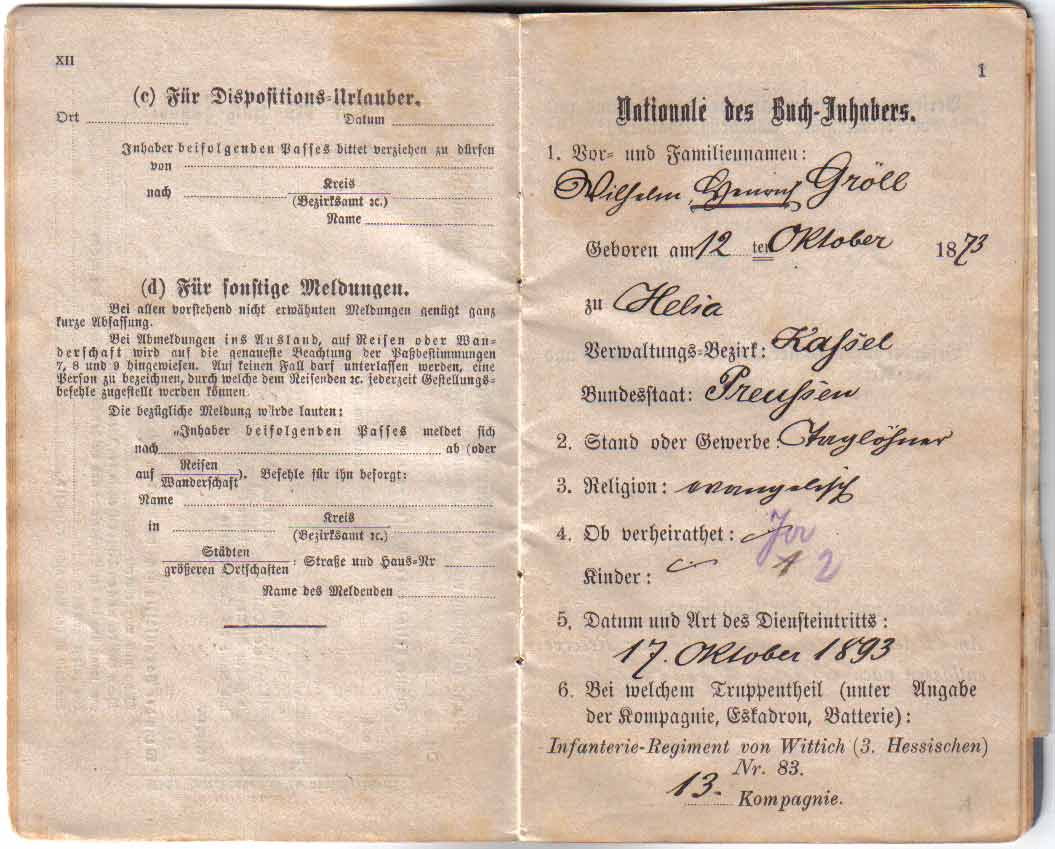 XII
(c) Für Dispositions-Urlauber.
Ort Datum
Inhaber beifolgenden Passes bittet verziehen zu dürfen
von
nach Kreis
(Bezirksamt ꝛc.)
Name
(d) Für sonstige Meldungen.
Bei allen vorstehend nicht erwähnten Meldungen genügt ganz
kurze Abfassung.
Bei Abmeldungen ins Ausland, auf Reisen oder Wan-
derschaft wird auf die genaueste Beachtung der Paßbestimmungen
7, 8 und 9 hingewiesen. Auf keinen Fall darf unterlassen werden, eine
Person zu bezeichnen, durch welche dem Reisenden ꝛc. jederzeit Gestellungs-
befehle zugestellt werden können.
Die bezügliche Meldung würde lauten:
„Inhaber beifolgenden Passes meldet sich
nach ab (oder
auf Reisen
Wanderschaft). Befehle für ihn besorgt:
Name
in Kreis
(Bezirksamt ꝛc.)
Städten
größeren Ortschaften: Straße und Haus-Nr
Name des Meldenden
1
Nationale des Buch-Inhabers.
1. Vor- und Familiennamen:
Wilhelm Heinrich Gröll
Geboren am 12 ten Oktober 1873
zu Helsa
Verwaltungs-Bezirk: Kassel
Bundesstaat: Preussen
2. Stand oder Gewerbe: Taglöhner
3. Religion: evangelisch
4. Ob verheirathet: Ja
Kinder: 1 2
5. Datum und Art des Diensteintritts:
17. Oktober 1893
6. Bei welchem Truppentheil (unter Angabe
der Kompagnie, Eskadron, Batterie):
Infanterie-Regiment von Wittich (3. Hessischen)
Nr. 83.
13. Kompagnie.